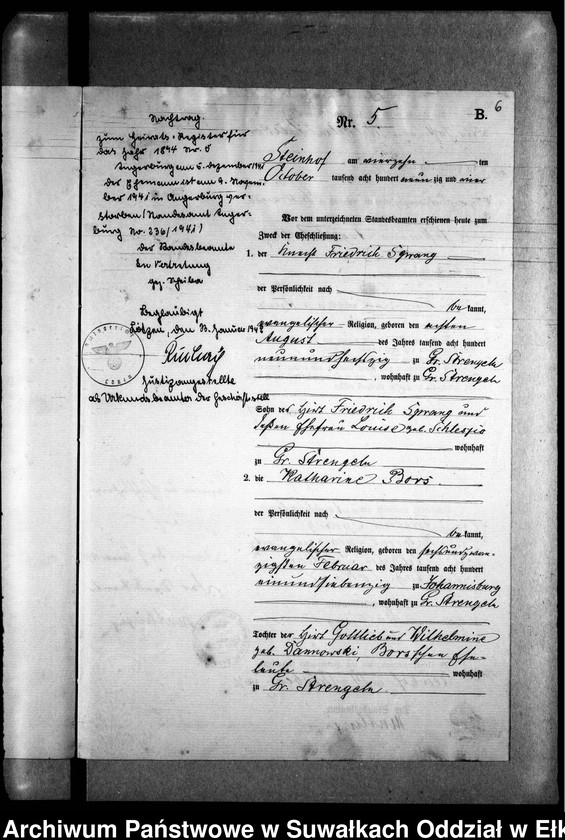 6
B.
Nr. 5.
Nachtrag.
zum Heirats-Register für
das Jahr 1894 Nr. 5
Angerburg am 5. Dezember 1941
Der Ehemann ist am 9. Novem-
ber 1941 in Angerburg ver-
storben (Standesamt Anger-
burg No. 236/1941)
Der Standesbeamte
In Vertretung
gez. Skiba
Beglaubigt
Lötzen, den 13. Januar 194
Justizangestellte
als Urkundsbeamter der Geschäftsstelle
Steinhof am vierzehn ten
October tausend acht hundert neun zig und vier
Vor dem unterzeichneten Standesbeamten erschienen heute zum
Zweck der Eheschließung:
1. der Knecht Friedrich Sprang
der Persönlichkeit nach
be kannt,
evangelischer Religion, geboren den ersten
August des Jahres tausend acht hundert
neunundsechszig zu Gr. Strengeln
, wohnhaft zu Gr. Strengeln
Sohn des Hirt Friedrich Sprang und
deßen Ehefrau Louise geb. Schleszio
wohnhaft
zu Gr. Strengeln
2. die Katharine Bors
der Persönlichkeit nach
be kannt,
evangelischer Religion, geboren den sechsundzwan-
zigsten Februar des Jahres tausend acht hundert
einundsiebenzig zu Johannisburg
, wohnhaft zu Gr. Strengeln
Tochter der Hirt Gottlieb und Wilhelmine
geb. Dannowski, Bors'schen Ehe-
leute wohnhaft
zu Gr. Strengeln
Archiwum Państwowe w Suwałkach Oddział w Ełk